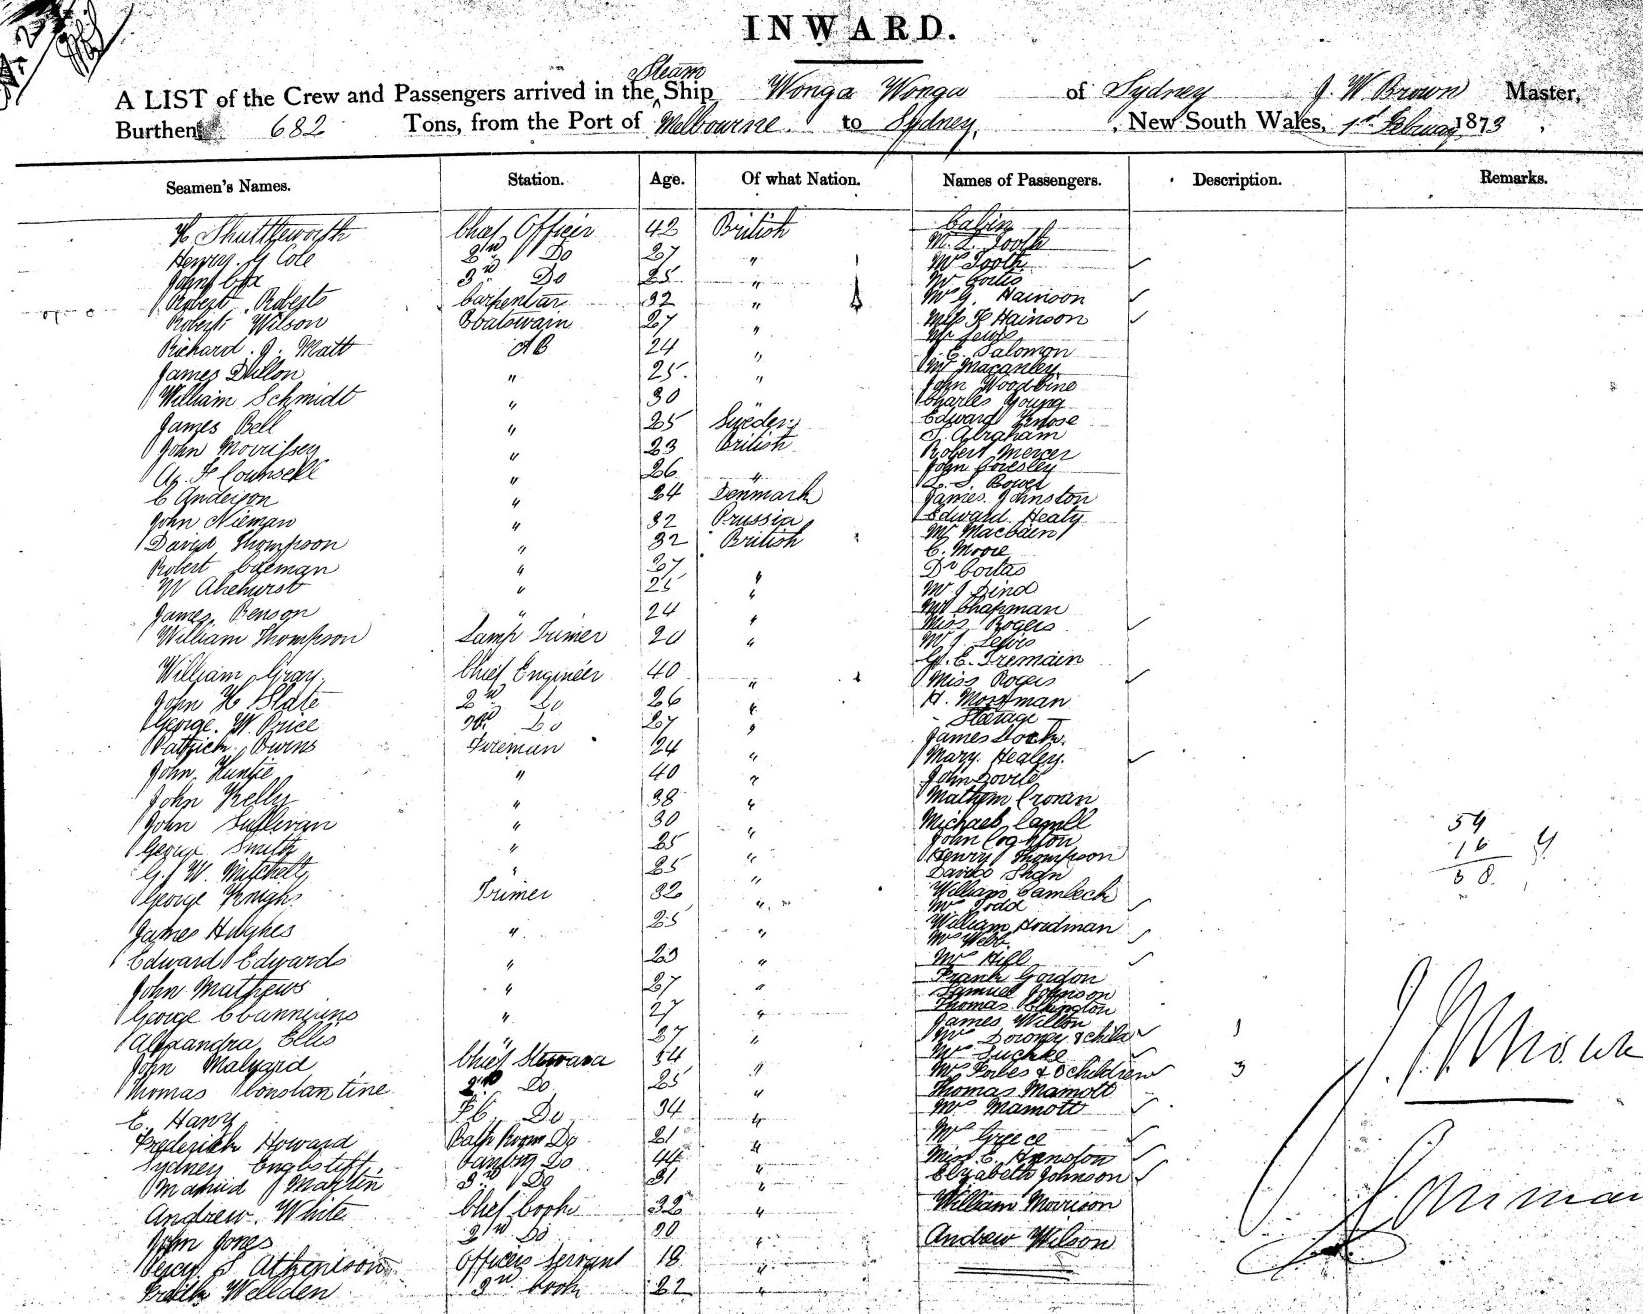 INWARD.
A LIST of the Crew and Passengers arrived in the Steam Ship Wonga Wonga of Sydney J. W Brown Master,
Burthen 682 Tons, from the Port of Melbourne to Sydney, New South Wales, 1st February 1873
Seamen's Names. Station. Age. Of what Nation. Names of Passengers. Description. Remarks.
H Shuttleworth Chief Officer 42 British Cabin
Henry. G Cole 2nd Do 27 " M. S. Tooth
John 3rd Do 25 " Mrs Tooth
Robert. Roberts Carpenter 32 " Mr Cortis
Robert Wilson Boatswain 27 " Mrs G. Hainson
Richard. J. Matt AB 24 " Miss F Hainson
James Dillon " 25. " Mr Lewis
William Schmidt " 30 " J. E. Salomon
James Bell " 25 Sweden Mr Macanley
John Morrissey " 23 British John Woodbine
A. F Counsell " 26 " Charles Young
C Anderson " 24 Denmark Edward Kmose
John Nieman " 32 Prussia S. Abraham
David Thompson " 32 British Robert Mercer
Robert Coleman " 27 " John Coresley
W Akehurst " 25 " S. Bower
James. Benson " 24 " James Johnston
William Thompson Lamp Trimer 20 " Edward Healy
William Gray Chief Engineer 40 " Mr Macbain
John H Slate 2nd Do 26 " C. Moore
George. W. Price 3rd Do 27 " Dr Cortis
Patrick Burns Fireman 24 " Mr J Lind
John. Huntie " 40 " Mr Chapman
John Kelly " 38 " Miss Rogers
John Sullivan " 30 " Mr J. Lewis
George Smith " 25 " G. E. Tremain
G. W. Mitchell " 25 " Miss Rogers
George Knight Trimer 32 " H. Mossman
James Hughes " 25 " Sterage
Edward Edwards " 23 " James Loch.
John Mathews " 27 " Mary. Healey.
George Channings " 27 " John Dovile
Alexandra Ellis " 27 " Mathew Cronin
John Malyard Chief Steward 34 " Michael Camll
Thomas Constantine 2nd Do 25 " John Coghton
E. Hany F.C. Do 34 " Henry Thompson
Frederick Howard Bath Room Do 21 " David Shan
Sydney Do 44 " William Cambeck
Martin 3rd Do 31 " Mrs Todd
Andrew. White Chief Cook 32 " William Hordman
John Jones 2nd Do 30 " Mrs Webb
Percy S Athenison Officers Servant 18 " Mrs Hill
Wellden 3rd Cook 22 " Frank Gordon
Samuel Johnson
Thomas Ellington
James Wilton
Mrs Downey & child 1
Mrs Luchke
Mrs Forbes & 3 children 3
Thomas Mamott
Mrs Mamott
Mrs Greece
Miss E. Henston
Elizabeth Johnson
William Morrison
Andrew Wilson
54
16 4
J. W Brown